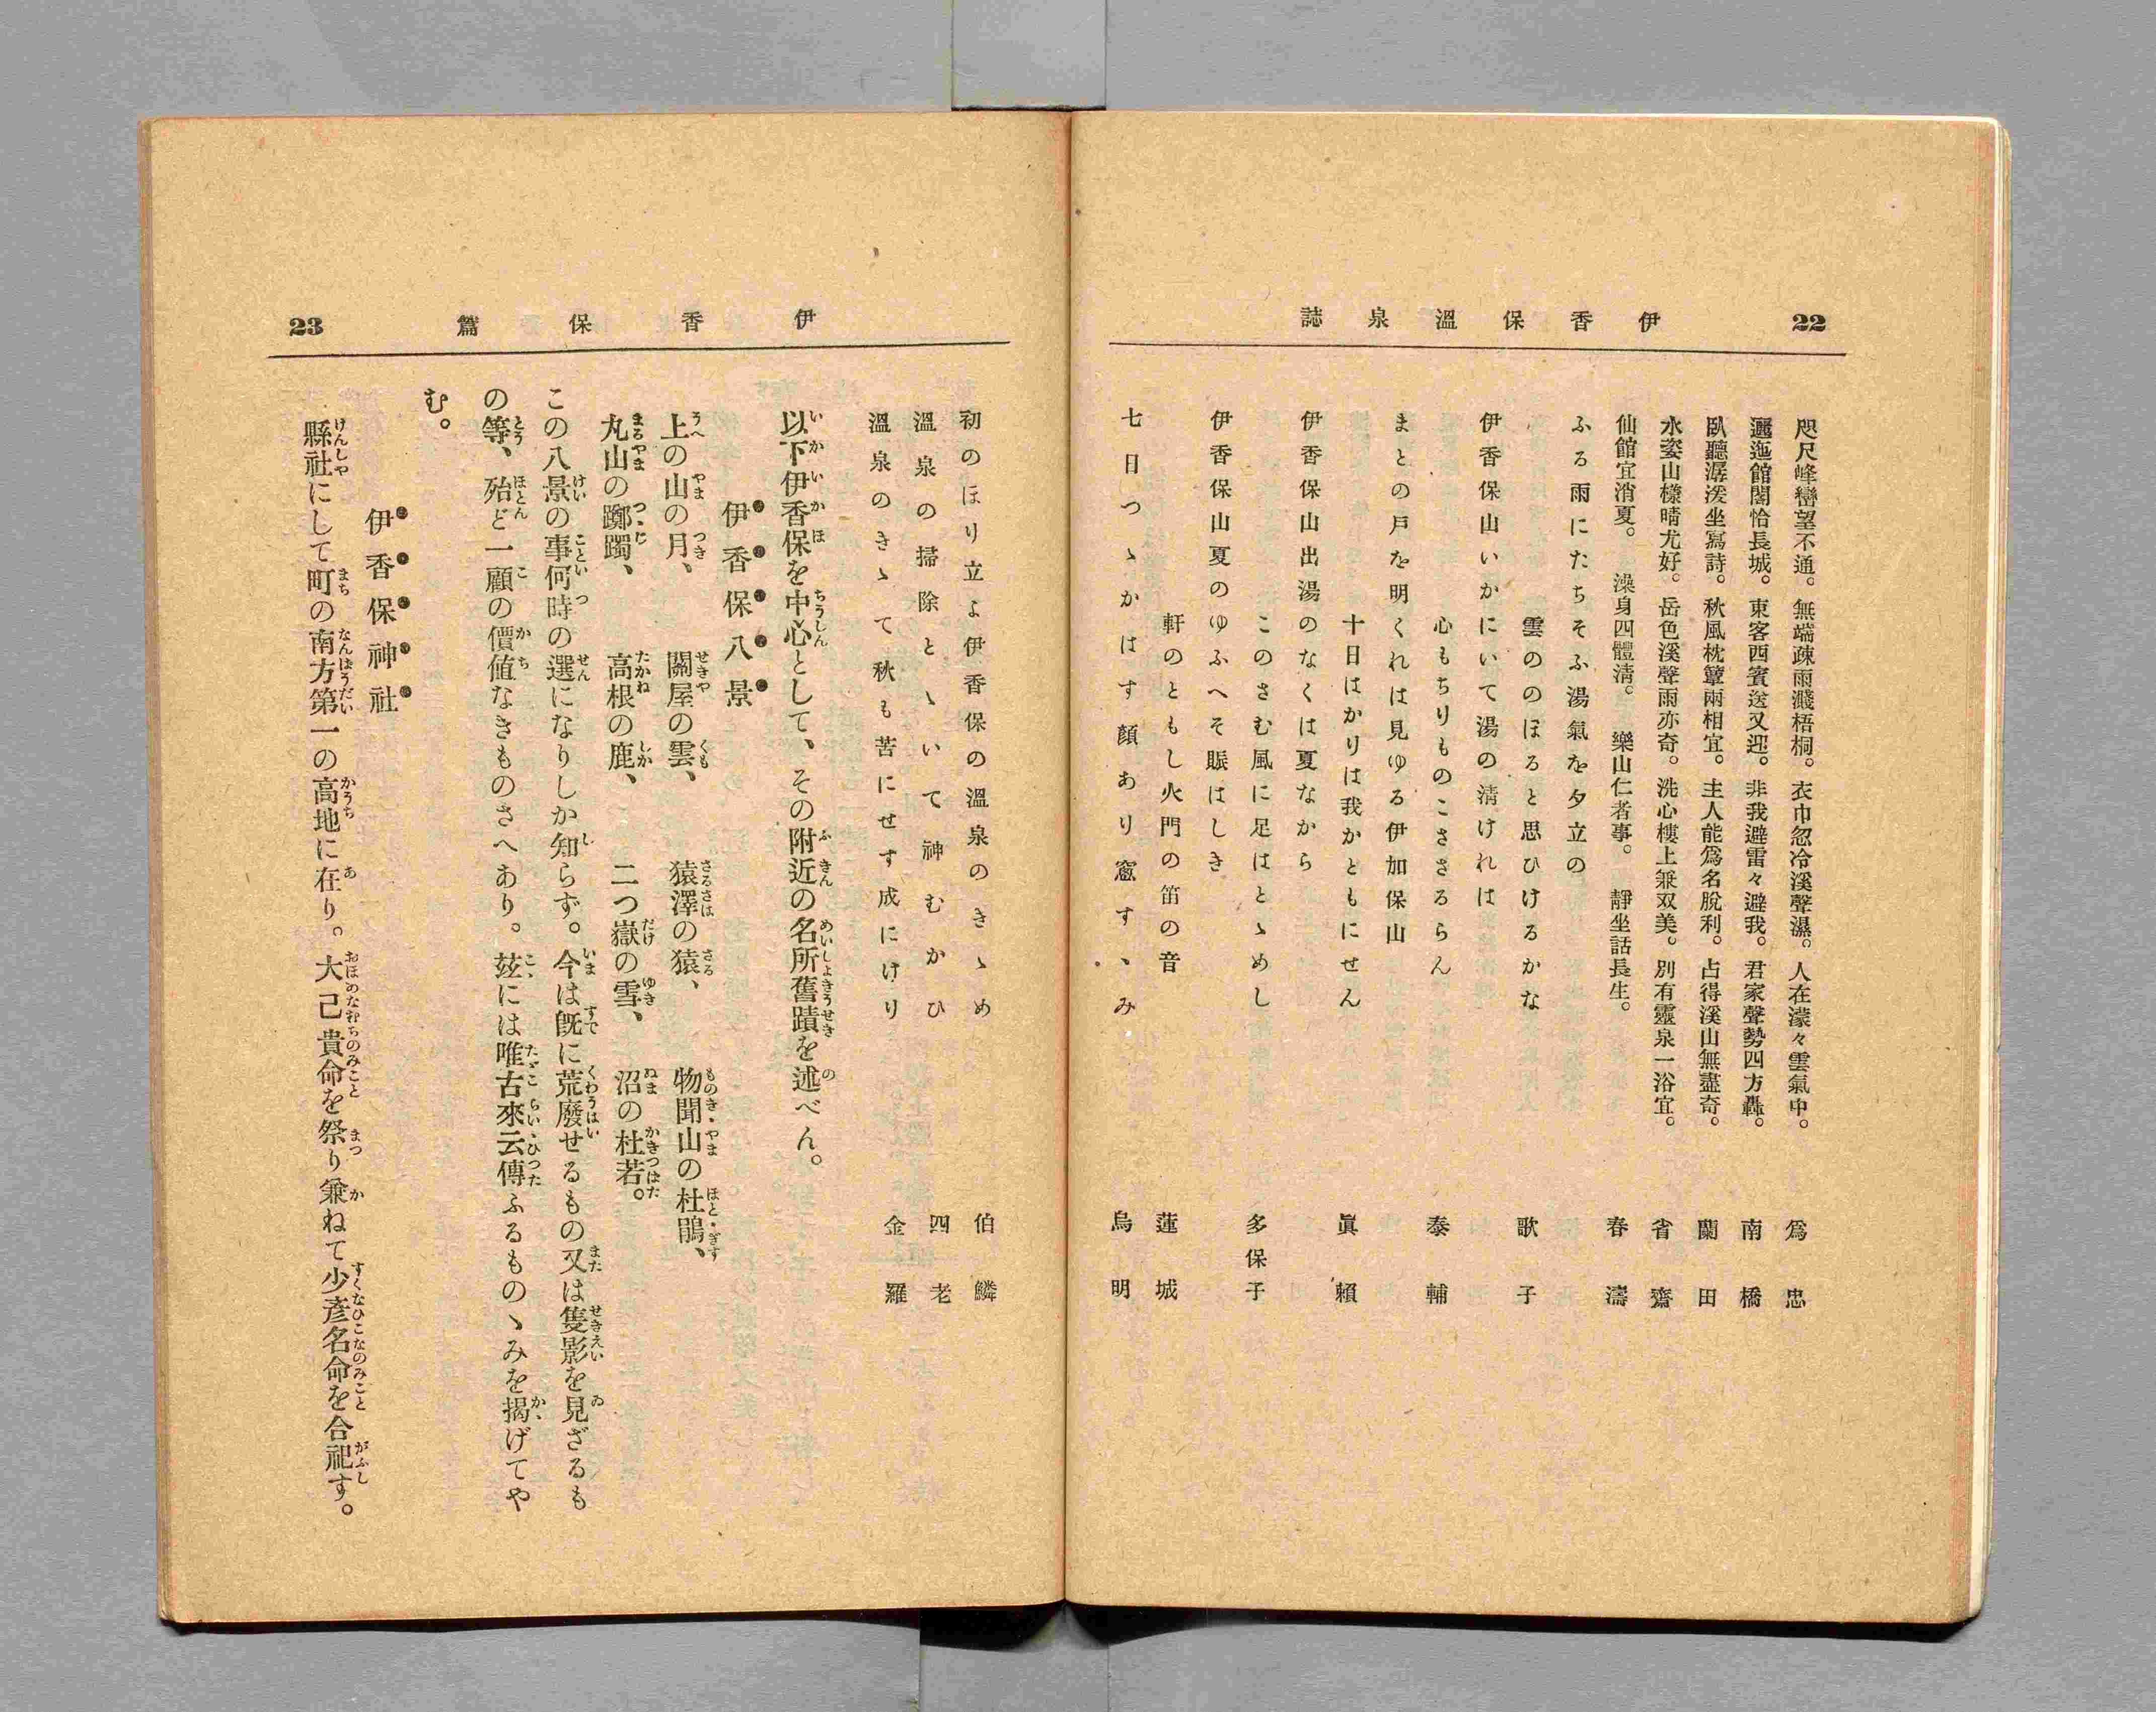 22
伊香保溫泉誌
咫尺峰巒望不通。無端疎雨濺梧桐。衣巾忽冷溪聲濕。人在濛々雲氣中。 爲忠
邐迤館閣恰長城。東客西賓送又迎。非我避雷々避我。君家聲勢四方轟。 南橋
臥聽潺湲坐寫詩。秋風枕簟兩相宜。主人能爲名脫利。占得溪山無盡奇。 蘭田
水姿山樣晴尤好。岳色溪聲雨亦奇。洗心樓上兼双美。別有靈泉一浴宜。 省齋
仙館宜消夏。 澡身四體淸。 樂山仁者事。 靜坐話長生。 春濤
ふる雨にたちそふ湯氣を夕立の
雲ののほると思ひけるかな 歌子
伊香保山いかにいて湯の淸けれは
心もちりものこささるらん 泰輔
まとの戸を明くれは見ゆる伊加保山
十日はかりは我かともにせん 眞賴
伊香保山出湯のなくは夏なから
このさむ風に足はとゝめし 多保子
伊香保山夏のゆふへそ賑はしき
軒のともし火門の笛の音 蓮城
七日つゝかはす顏あり窓すゝみ 烏明
伊香保篇
23
初のほり立よ伊香保の溫泉のきゝめ 伯鱗
溫泉の掃除とゝいて神むかひ 四老
溫泉のきゝて秋も苦にせす成にけり 金羅
以下伊香保を中心として、その附近の名所舊蹟を述べん。
伊香保八景
上の山の月、 關屋の雲、 猿澤の猿、 物聞山の杜鵑、
丸山の躑躅、 高根の鹿、 二つ嶽の雪、 沼の杜若。
この八景の事何時の選になりしか知らず。今は旣に荒廢せるもの又は隻影を見ざるも
の等、殆ど一顧の價値なきものさへあり。玆には唯古來云傳ふるものゝみを揭げてや
む。
伊香保神社
縣社にして町の南方第一の高地に在り。大己貴命を祭り兼ねて少彥名命を合祀す。